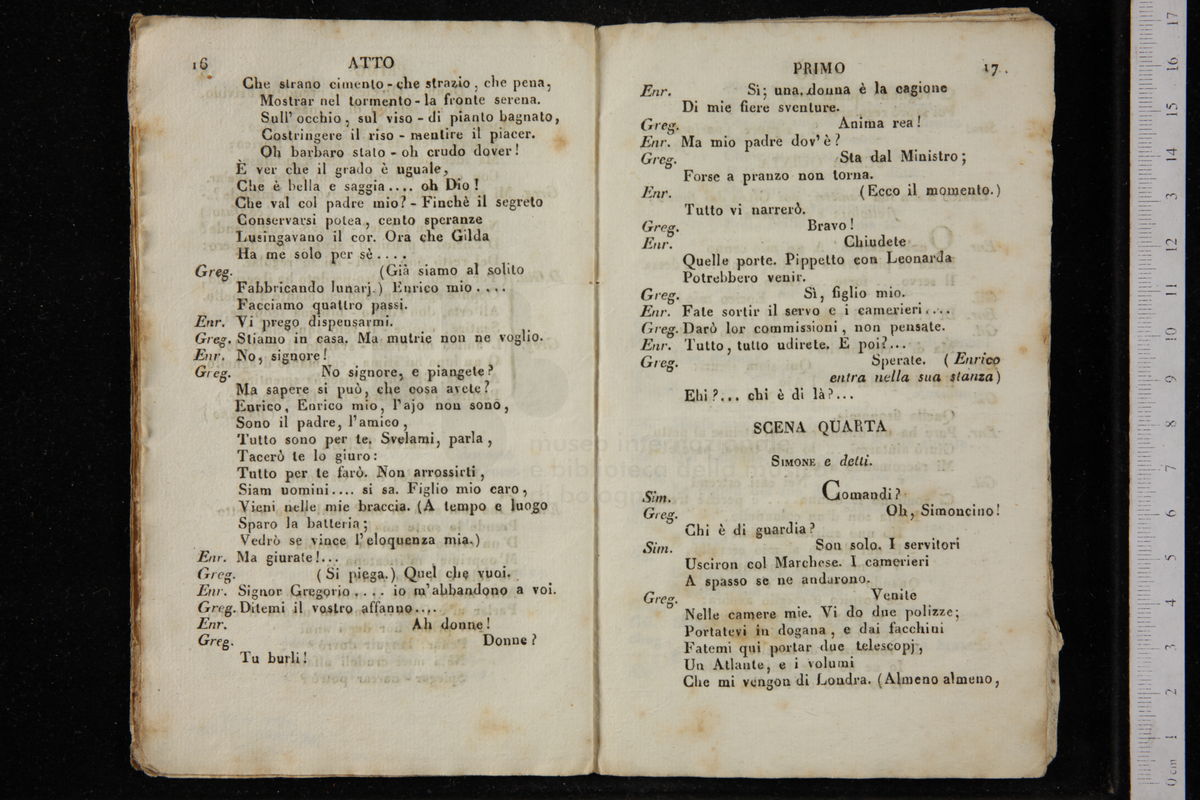 16
ATTO
Che strano cimento - che strazio, che pena,
Mostrar nel tormento - la fronte serena.
Sull' occhio, sul viso - di pianto bagnato,
Costringere il riso - mentire il piacer.
Oh barbaro stato - oh crudo dover!
È ver che il grado è uguale,
Che è bella e saggia.... oh Dio!
Che val col padre mio? - Finchè il segreto
Conservarsi potea, cento speranze
Lusingavano il cor. Ora che Gilda
Ha me solo per sè....
Greg. (Già siamo al solito
Fabbricando lunarj.) Enrico mio....
Facciamo quattro passi.
Enr. Vi prego dispensarmi.
Greg. Stiamo in casa. Ma mutrie non ne voglio.
Enr. No, signore!
Greg. No signore, e piangete?
Ma sapere si può, che cosa avete?
Enrico, Enrico mio, l'ajo non sono,
Sono il padre, l'amico,
Tutto sono per te. Svelami, parla,
Tacerò te lo giuro:
Tutto per te farò. Non arrossirti,
Siam uomini.... si sa. Figlio mio caro,
Vieni nelle mie braccia. (A tempo e luogo
Sparo la batteria;
Vedrò se vince l'eloquenza mia.)
Enr. Ma giurate!...
Greg. (Si piega.) Quel che vuoi.
Enr. Signor Gregorio.... io m'abbandono a voi.
Greg. Ditemi il vostro affanno....
Enr. Ah donne!
Greg. Donne?
Tu burli!
PRIMO
17.
Enr. Sì; una donna è la cagione
Di mie fiere sventure.
Greg. Anima rea!
Enr. Ma mio padre dov'è?
Greg. Sta dal Ministro;
Forse a pranzo non torna.
Enr. (Ecco il momento.)
Tutto vi narrerò.
Greg. Bravo!
Enr. Chiudete
Quelle porte. Pippetto con Leonarda
Potrebbero venir.
Greg. Sì, figlio mio.
Enr. Fate sortir il servo e i camerieri....
Greg. Darò lor commissioni, non pensate.
Enr. Tutto, tutto udirete. E poi?...
Greg. Sperate. (Enrico
entra nella sua stanza)
Ehi?... chi è di là?...
SCENA QUARTA
SIMONE e detti.
Sim. Comandi?
Greg. Oh, Simoncino!
Chi è di guardia?
Sim. Son solo. I servitori
Usciron col Marchese. I camerieri
A spasso se ne andarono.
Greg. Venite
Nelle camere mie. Vi do due polizze;
Portatevi in dogana, e dai facchini
Fatemi qui portar due telescopj,
Un Atlante, e i volumi
Che mi vengon di Londra. (Almeno almeno,
museo internazionale
e biblioteca della musica
di bologna
0 cm 1 2 3 4 5 6 7 8 9 10 11 12 13 14 15 16 17